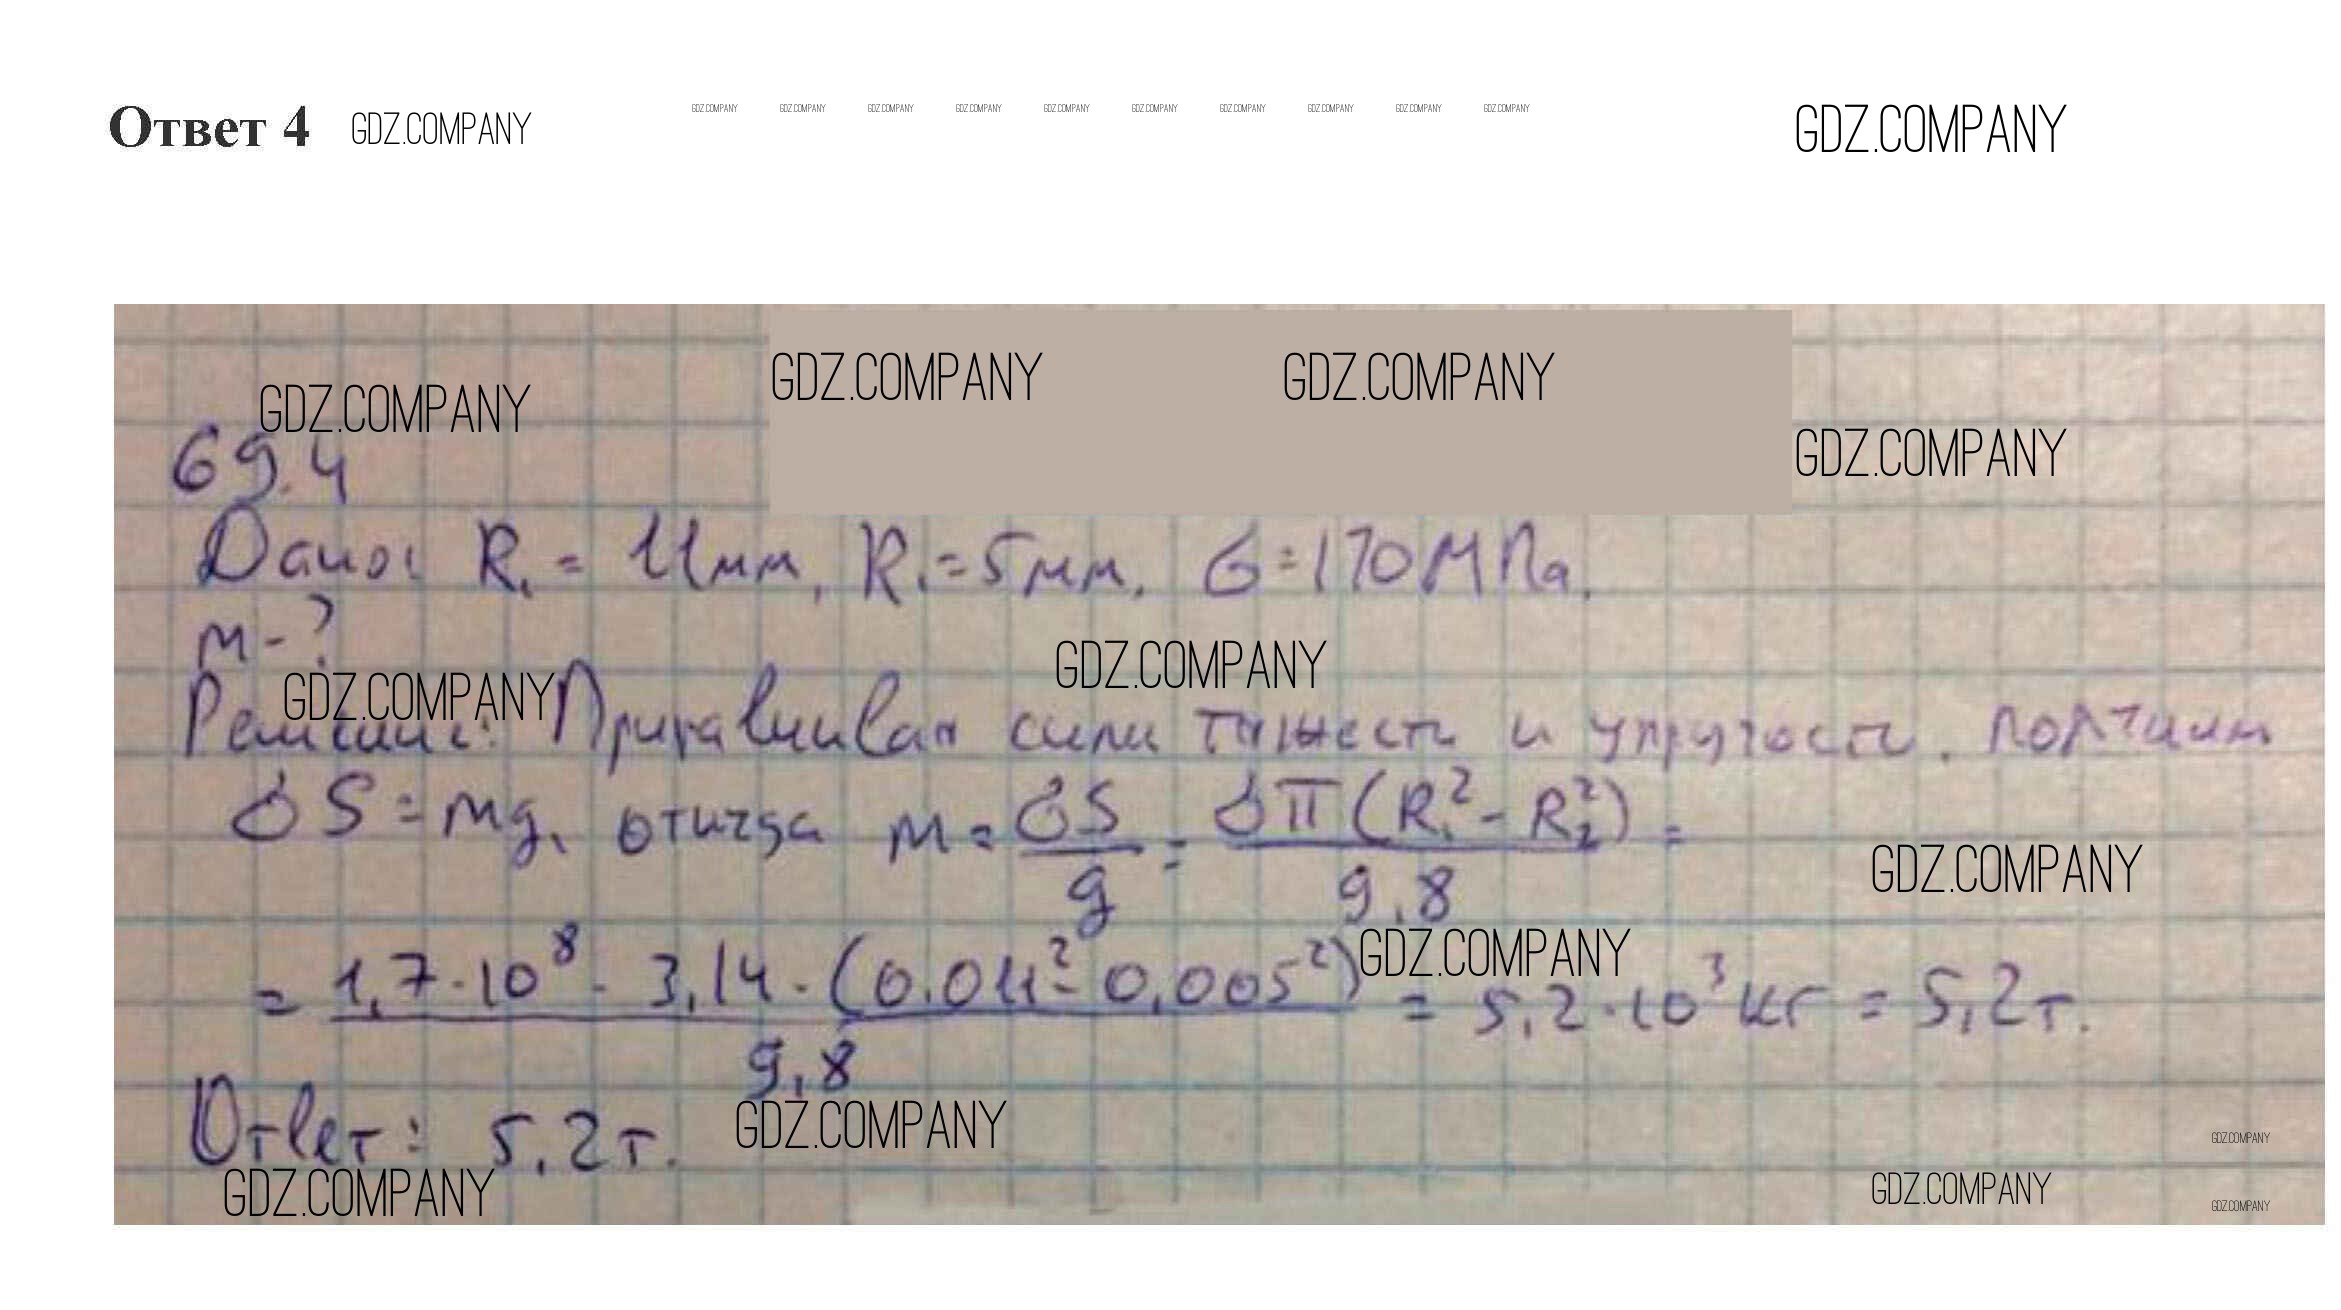 Ответ 4 GDZ.COMPANY GDZ.COMPANY GDZ.COMPANY GDZ.COMPANY GDZ.COMPANY GDZ.COMPANY GDZ.COMPANY GDZ.COMPANY GDZ.COMPANY GDZ.COMPANY GDZ.COMPANY GDZ.COMPANY
GDZ.COMPANY GDZ.COMPANY GDZ.COMPANY
GDZ.COMPANY
69.4
Дано: R₁ = 11мм, R₁ = 5мм, σ = 170МПа.
m - ?
GDZ.COMPANY GDZ.COMPANY
Решение: Приравнивая силы тяжести и упругости. получим
σS = mg, откуда m = σS/g = σπ(R₁² - R₂²)/9,8 =
GDZ.COMPANY
GDZ.COMPANY
= 1,7·10⁸ · 3,14 · (0,011² - 0,005²)/9,8 = 5,2·10³ кг = 5,2т.
Ответ: 5,2т.
GDZ.COMPANY
GDZ.COMPANY
GDZ.COMPANY
GDZ.COMPANY
GDZ.COMPANY